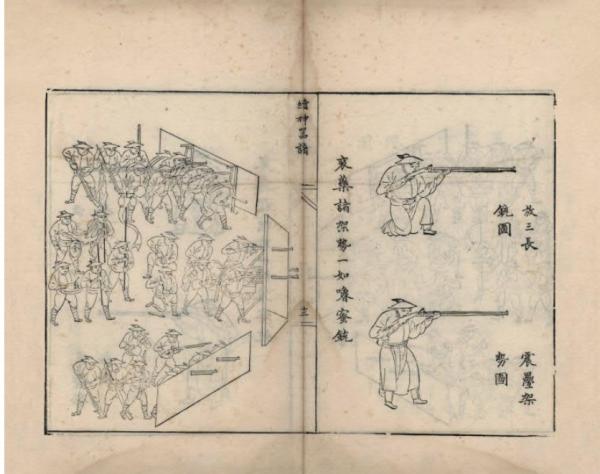 放三長
銃圖
震疊架
勢圖
裝藥諸架勢一如嚕蜜銃
續神器譜